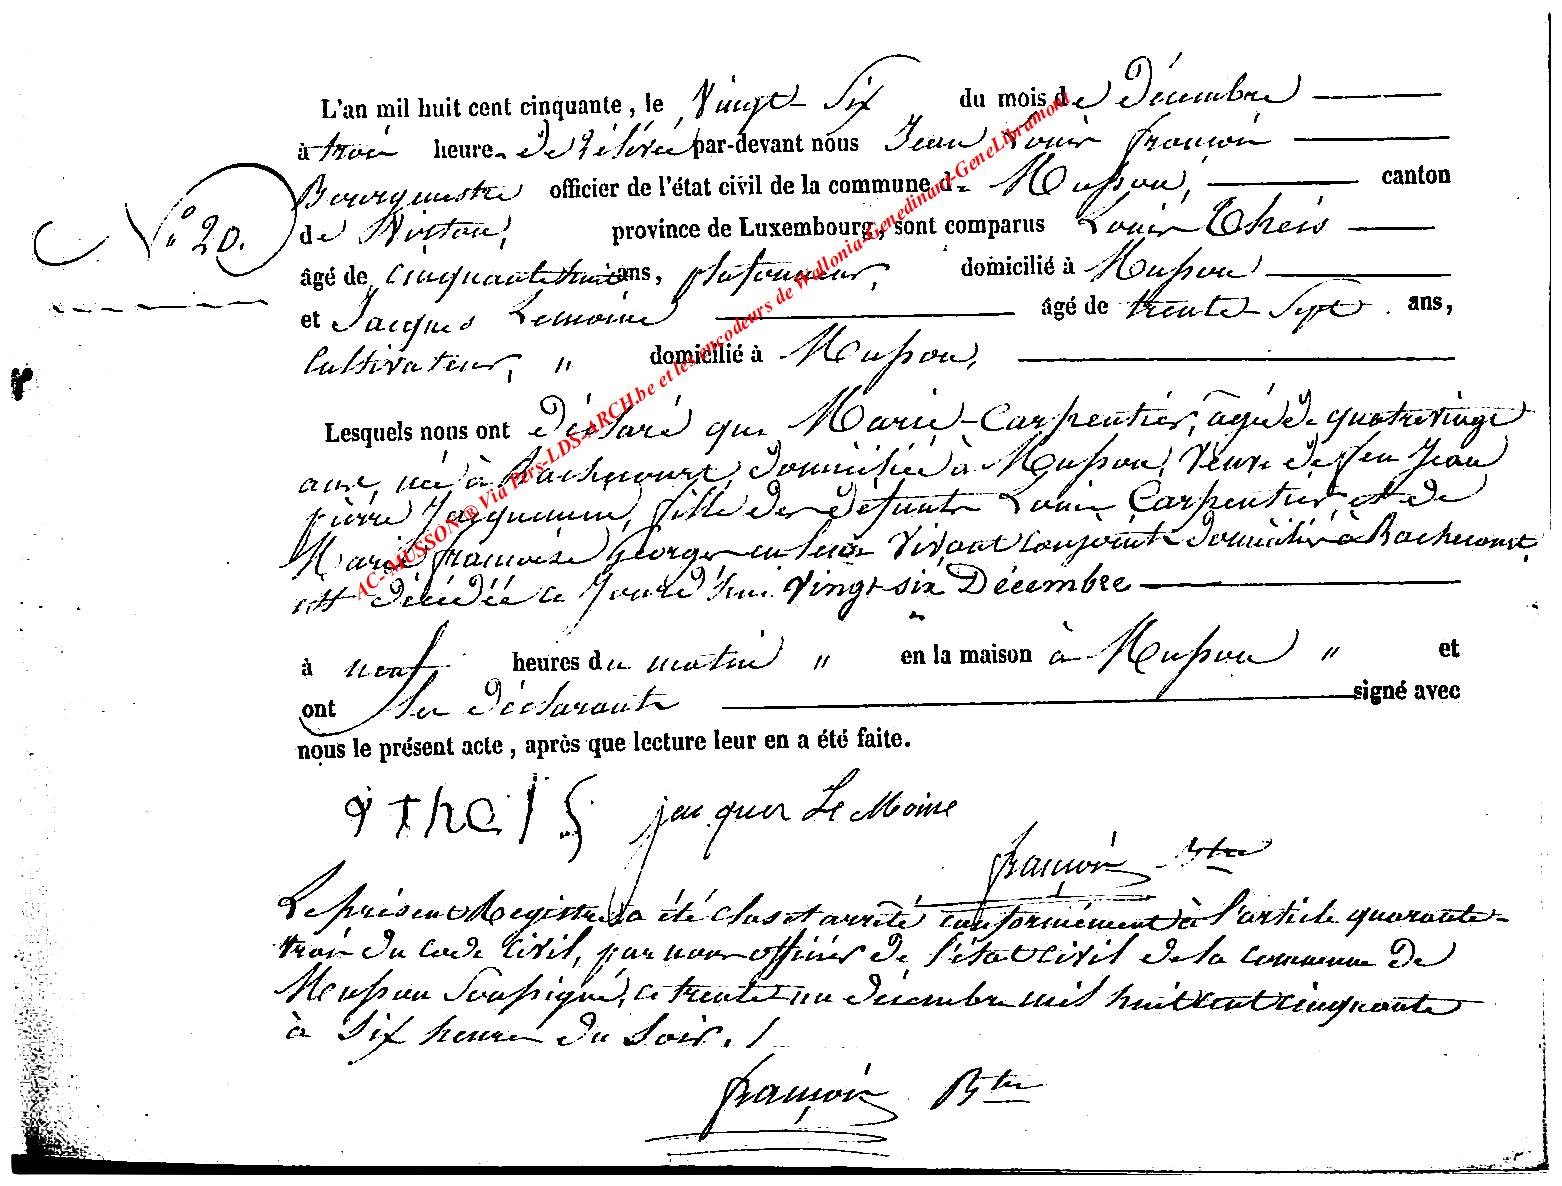 L'an mil huit cent cinquante, le Vingt Six du mois de décembre
à trois heures de relevée par-devant nous Jean Louis françois
Bourgmestre officier de l'état civil de la commune de Musson, canton
N° 20.
de Virton, province de Luxembourg, sont comparus Louis Theis
âgé de cinquante huit ans, plafonneur, domicilié à Musson
et Jacques Lemoine âgé de trente Sept ans,
Cultivateur, " domicilié à Musson,
Lesquels nous ont déclaré que Marie Carpentier, âgée de quatrevingt
ans, née à Rachecourt, domiciliée à Musson, Veuve de feu Jean
pierre Jacquemin, fille des défunts Louis Carpentier, et de
Marie françoise Georges en leur Vivant conjoints domiciliés à Rachecourt,
est décédée ce Jourd'hui Vingt six Décembre
à neuf heures du matin " en la maison à Musson " et
ont les déclarants signé avec
nous le présent acte, après que lecture leur en a été faite.
Theis jacques Le Moine
françois Btre
Le présent Registre a été clos et arrêté conformément à l'article quarante-
trois du code civil, par nous officier de l'état civil de la commune de
Musson Soussigné, ce trente un décembre mil huit cent cinquante
à Six heures du Soir. /
françois Btre
AC-MUSSON ® Via Pers-LDS-ARCH.be et les encodeurs de Wallonia-Genedinant-GeneLibramont